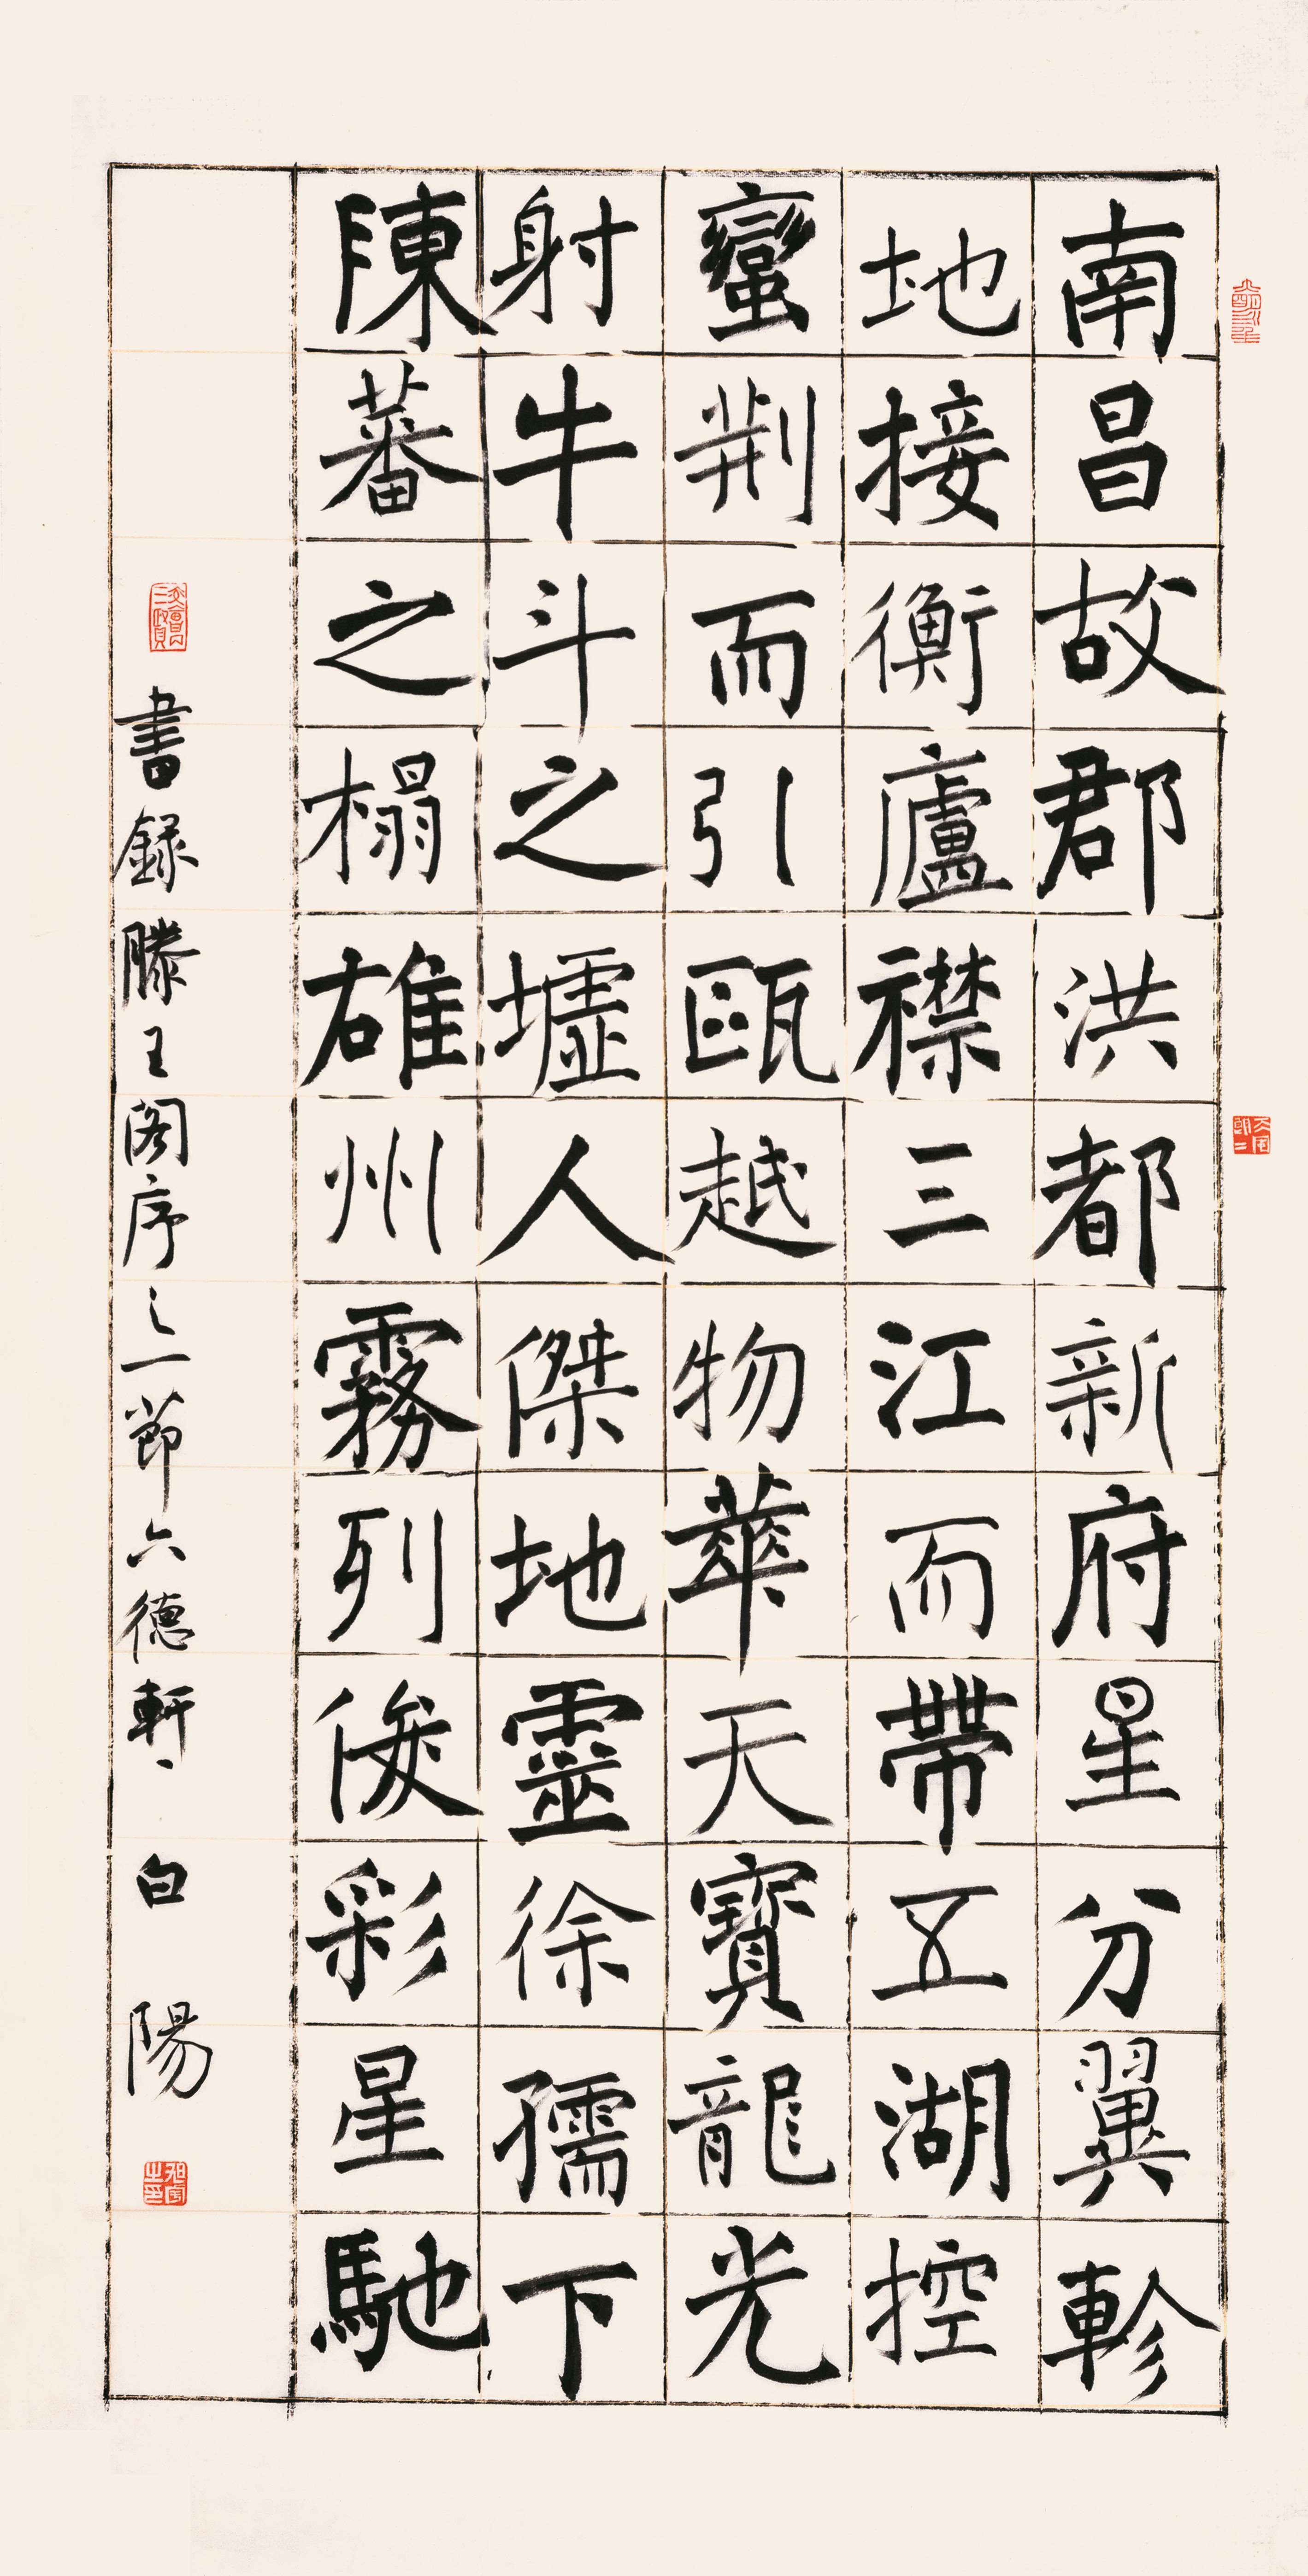 南昌故郡洪都新府星分翼軫
地接衡廬襟三江而帶五湖控
蠻荆而引甌越物華天寶龍光
射牛斗之墟人傑地靈徐孺下
陳蕃之榻雄州霧列俊彩星馳
書録滕王阁序之一節六德軒、白陽